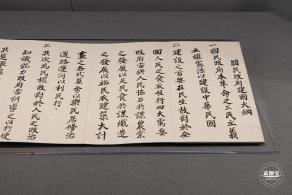 國民政府建國大綱
一國民政府本革命之三民主義
五權憲法以建設中華民國
二建設之首要在民生故對於全
國人民之食衣住行四大需要
政府當與人民協力共謀農業
之發展以足民食共謀織造
之發展以裕民衣建築大計
畫之各式屋舍以樂民居修治
道路運河以利民行
三其次為民權故對於人民之政治
知識能力政府當訓導之以行使